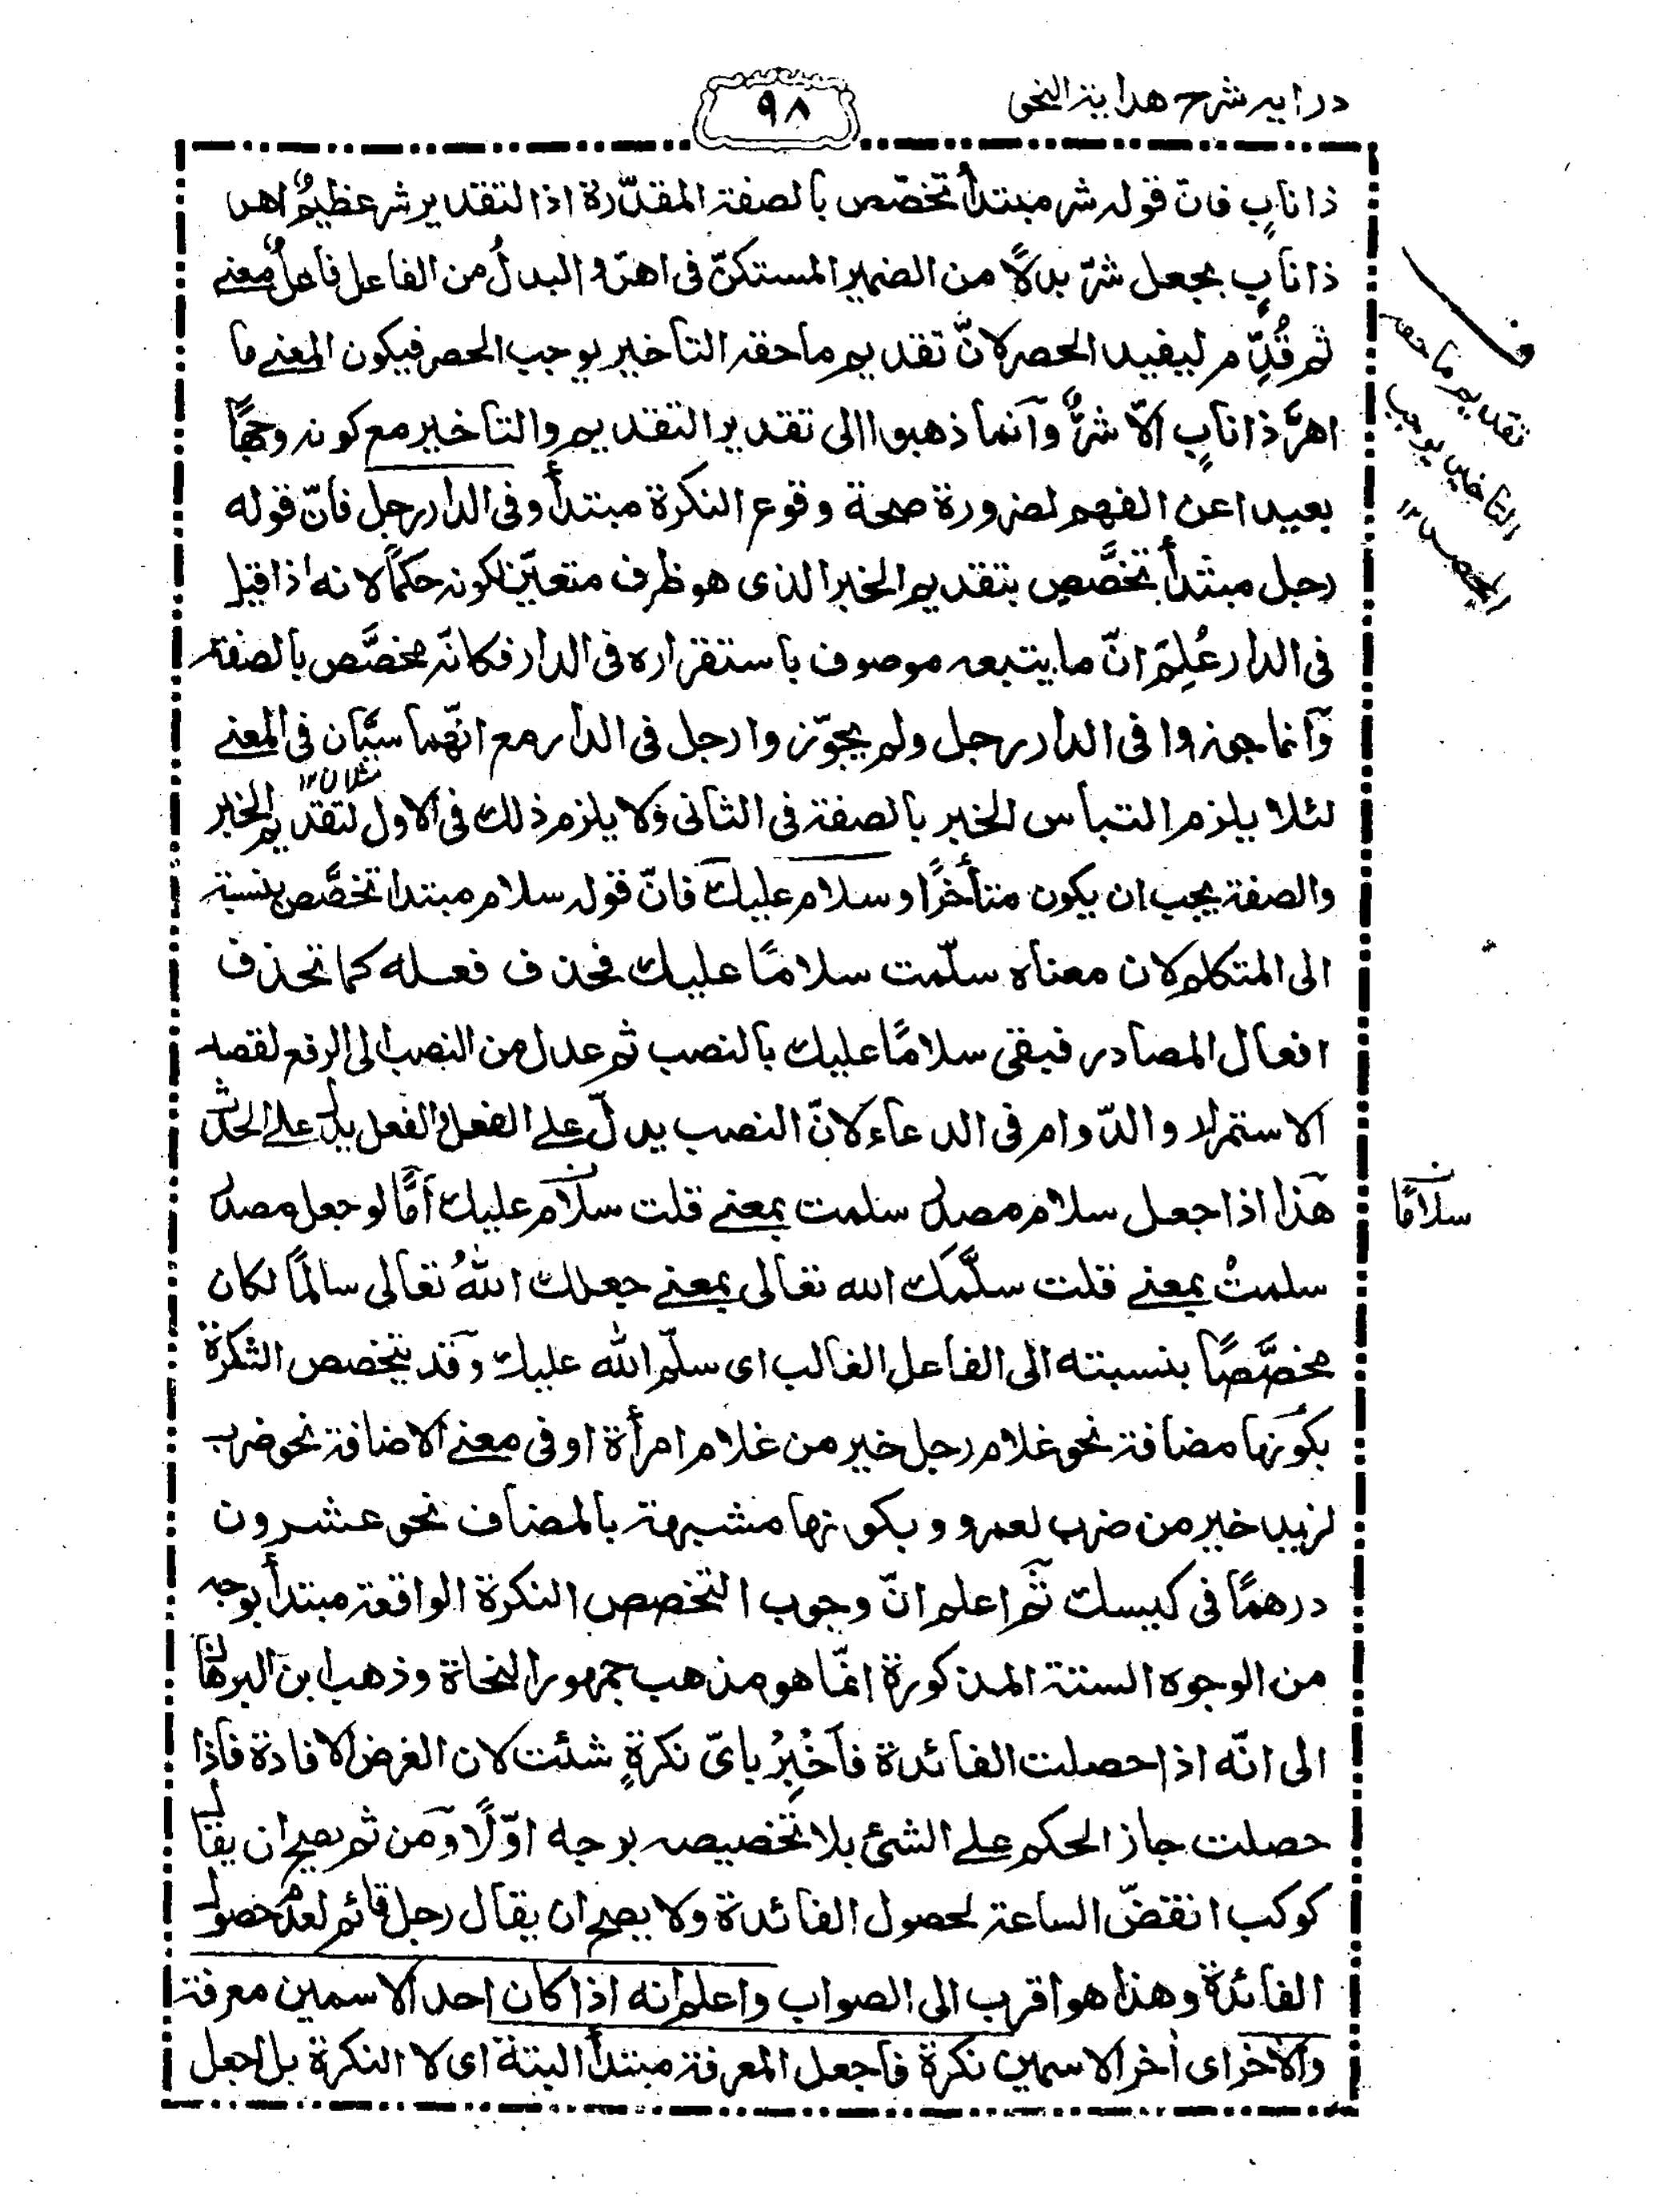 درايه شرح هداية النحو
٩٨
ذا نابٍ فان قوله شر مبتدأ تخصّص بالصفة المقدّرة اذ التقدير شر عظيمٌ اهر
ذا نابٍ بجعل شرّ بدلًا من الضمير المستكنّ فى اهرّ و البدلُ من الفاعل فاعلٌ معنے
ثم قُدِّم ليفيد الحصر لانّ تقديم ما حقه التاخير يوجب الحصر فيكون المعنے ما
اهرَّ ذا نابٍ الّا شرٌّ وآنما ذهبوا الى تقدير التقديم والتاخير مع كونه وجهًا
بعيدا عن الفهم لضرورة صحة وقوع النكرة مبتدأ وفى الدار رجل فانّ قوله
رجل مبتدأ تخصَّص بتقديم الخبر الذى هو ظرف متعيّن لكونه حكمًا لانه اذا قيل
فى الدار عُلِمَ انّ ما يتبعه موصوف باستقراره فى الدار فكانّه مخصَّص بالصفة
وآنما جوزوا فى الدار رجل ولم يجوّزوا رجل فى الدار مع انّهما سيّان فى المعنے
لئلا يلزم التباس الخبر بالصفة فى الثانى ولا يلزم ذلك فى الاول لتقديم الخبر
والصفة يجب ان يكون متأخرًا و سلام عليك فانّ قوله سلام مبتدا تخصَّص بنسبة
الى المتكلم لان معناه سلّمت سلامًا عليك فحذف فعله كما تحذف
افعال المصادر فبقى سلامًا عليك بالنصب ثم عدل من النصب الى الرفع لقصد
الاستمرار والدّوام فى الدعاء لانّ النصب يدلّ علے الفعل والفعل يدل علے الحدث
هٓذا اذا جعل سلام مصدر سلمت بمعنے قلت سلام عليك اَمّا لو جعل مصدر
سلمتُ بمعنے قلت سلّمك الله تعالى بمعنے جعلك اللهُ تعالى سالمًا لكان
مخصَّصًا بنسبته الى الفاعل الغائب اى سلّم الله عليك وقد يتخصص النكرة
بكونها مضافة نحو غلام رجل خير من غلام امرأة او فى معنے الاضافة نحو ضرب
لزيد خير من ضرب لعمرو و بكونها مشبهة بالمضاف نحو عشرون
درهمًا فى كيسك ثم اعلم انّ وجوب التخصص النكرة الواقعة مبتدأ بوجه
من الوجوه الستة المذكورة انّما هو مذهب جمهور النحاة وذهب ابن البرهان
الى انّه اذا حصلت الفائدة فاَخْبِرْ باىّ نكرةٍ شئت لان الغرض الافادة فاذا
حصلت جاز الحكم علے الشئ بلا تخصيصه بوجه اوّلًا ومن ثم يصح ان يقال
كوكب انقضّ الساعة لحصول الفائدة ولا يصح ان يقال رجل قائم لعدم حصول
الفائدة وهذا هو اقرب الى الصواب واعلم انه اذا كان احد الاسمين معرفة
والآخر اى اٰخر الاسمين نكرة فاجعل المعرفة مبتدأ البتة اى لا النكرة بل اجعل
تقديم ما حقه
التاخير يوجب
الحصر ١٢
سلامًا